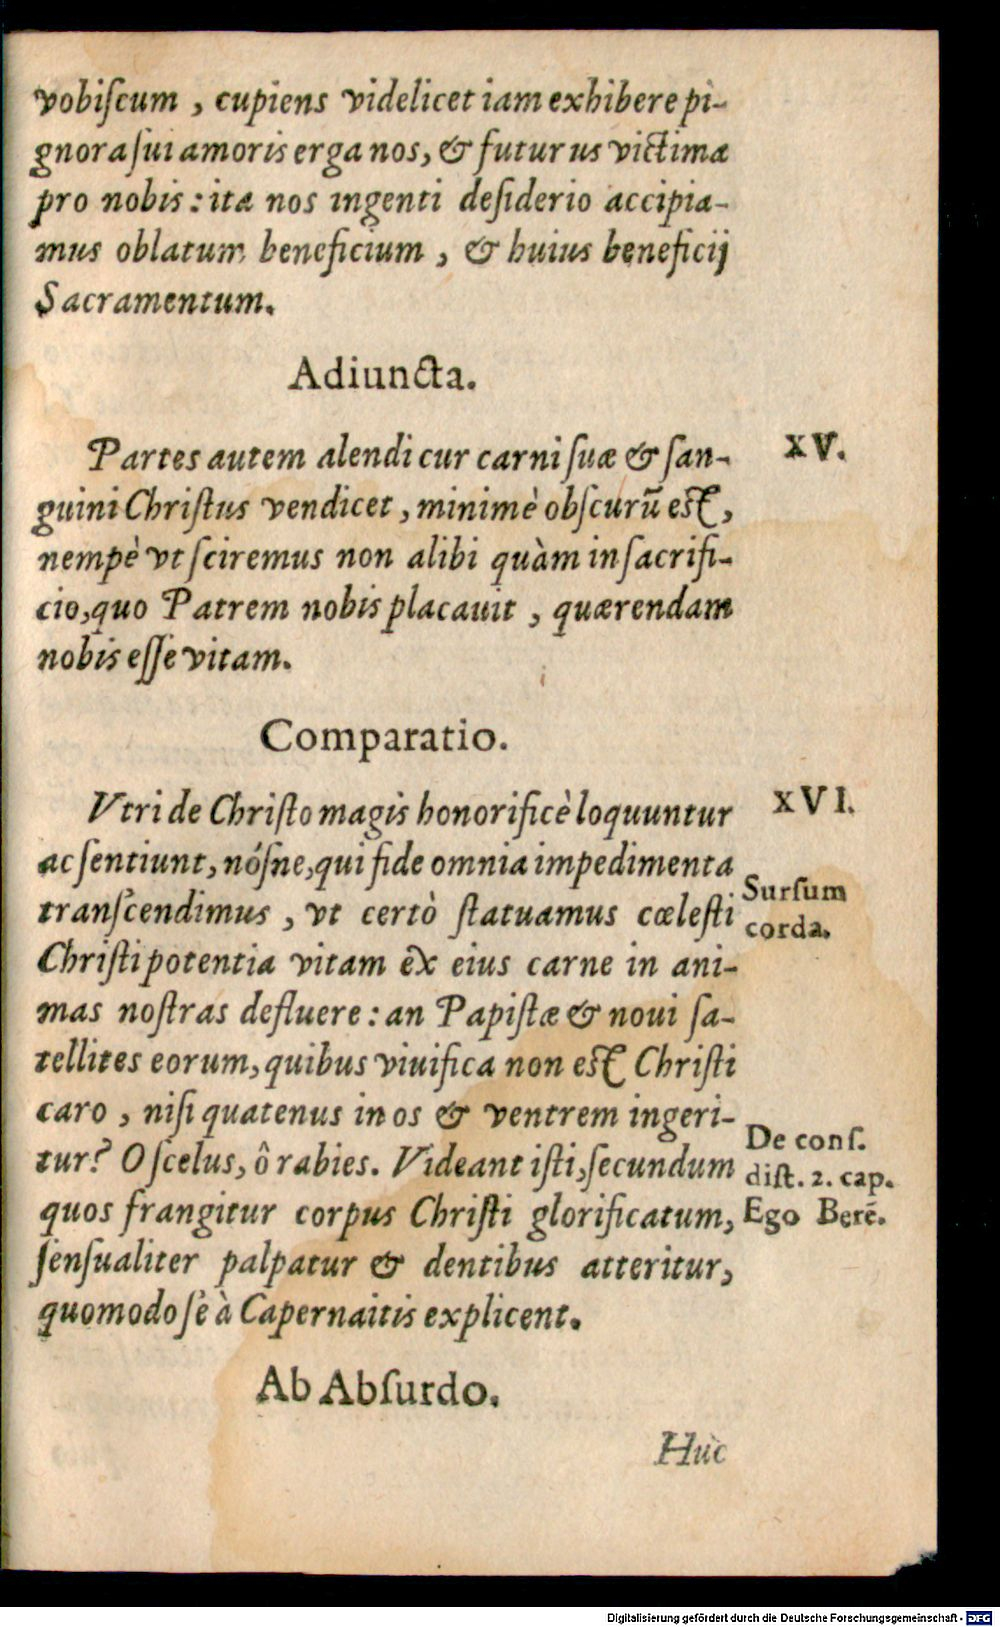 vobiſcum , cupiens videlicet iam exhibere pi-
gnora ſui amoris erga nos, & futurus victima
pro nobis: ita nos ingenti deſiderio accipia-
mus oblatum beneficium , & huius beneficij
Sacramentum.
Adiuncta.
Partes autem alendi cur carni ſuæ & ſan-
guini Chriſtus vendicet, minimè obſcurū eſt,
nempè vt ſciremus non alibi quàm in ſacrifi-
cio, quo Patrem nobis placauit , quærendam
nobis eſſe vitam.
XV.
Comparatio.
Vtri de Chriſto magis honorificè loquuntur
ac ſentiunt, nóſne, qui fide omnia impedimenta
tranſcendimus , vt certò ſtatuamus cæleſti
Chriſti potentia vitam ex eius carne in ani-
mas noſtras defluere: an Papiſtæ & noui ſa-
tellites eorum, quibus viuifica non eſt Chriſti
caro , niſi quatenus in os & ventrem ingeri-
tur? O ſcelus, ô rabies. Videant iſti, ſecundum
quos frangitur corpus Chriſti glorificatum,
ſenſualiter palpatur & dentibus atteritur,
quomodo ſe à Capernaitis explicent.
XVI.
Surſum
corda.
De conſ.
diſt. 2. cap.
Ego Berē.
Ab Abſurdo.
Huc
Digitalisierung gefördert durch die Deutsche Forschungsgemeinschaft - DFG